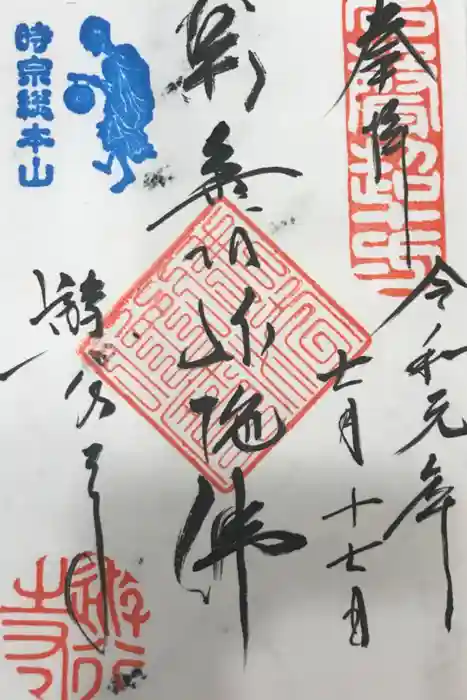 奉拝
令和元年
七月十七日
南無阿弥陀佛
遊行寺
時宗総本山
遊行寺